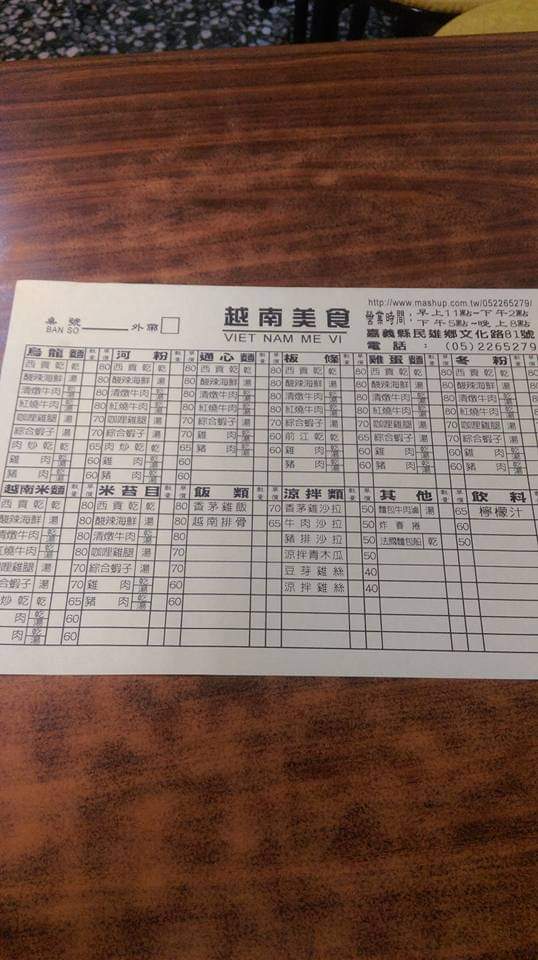 http://www.mashup.com.tw/052265279/
桌號 BAN SO 外帶
越南美食
VIET NAM ME VI
營業時間：早上11點~下午2點
下午5點~晚上8點
嘉義縣民雄鄉文化路81號
電話：(05)2265279
烏龍麵 數量 單價 河粉 數量 單價 通心麵 數量 單價 板條 數量 單價 雞蛋麵 數量 單價 冬粉
西貢乾乾 80 西貢乾乾 80 西貢乾乾 80 西貢乾乾 80 西貢乾乾 80 西貢乾乾
酸辣海鮮湯 80 酸辣海鮮湯 80 酸辣海鮮湯 80 酸辣海鮮湯 80 酸辣海鮮湯 80 酸辣海鮮湯
清燉牛肉乾湯 80 清燉牛肉乾湯 80 清燉牛肉乾湯 80 清燉牛肉乾湯 80 清燉牛肉乾湯 80 清燉牛肉乾湯
紅燒牛肉乾湯 80 紅燒牛肉乾湯 80 紅燒牛肉乾湯 80 紅燒牛肉乾湯 80 紅燒牛肉乾湯 80 紅燒牛肉乾湯
咖哩雞腿湯 70 咖哩雞腿湯 70 咖哩雞腿湯 70 綜合蝦子湯 70 咖哩雞腿湯 70 咖哩雞腿湯
綜合蝦子湯 70 綜合蝦子湯 70 綜合蝦子湯 70 雞肉乾湯 60 綜合蝦子湯
肉炒乾乾 65 肉炒乾乾 65 雞肉乾湯 60 前江乾乾
雞肉乾湯 60 雞肉乾湯 60 豬肉乾湯 60 雞肉乾湯
豬肉乾湯 60 豬肉乾湯 60 豬肉乾湯
越南米麵 數量 單價 米苔目 數量 單價 飯類 數量 單價 涼拌類 數量 單價 其他 數量 單價 飲料
西貢乾乾 80 西貢乾乾 80 香茅雞飯 70 香茅雞沙拉 50 麵包牛肉滷湯 65 檸檬汁
酸辣海鮮湯 80 酸辣海鮮湯 80 越南排骨 65 牛肉沙拉 50 炸春捲 60
清燉牛肉乾湯 80 清燉牛肉乾湯 80 豬排沙拉 50 法國麵包船乾 50
紅燒牛肉乾湯 80 咖哩雞腿湯 70 涼拌青木瓜 50
咖哩雞腿湯 70 綜合蝦子湯 70 豆芽雞絲 40
綜合蝦子湯 70 雞肉乾湯 60 涼拌雞絲 40
炒乾乾 65 豬肉乾湯 60
肉乾湯 60
肉乾湯 60